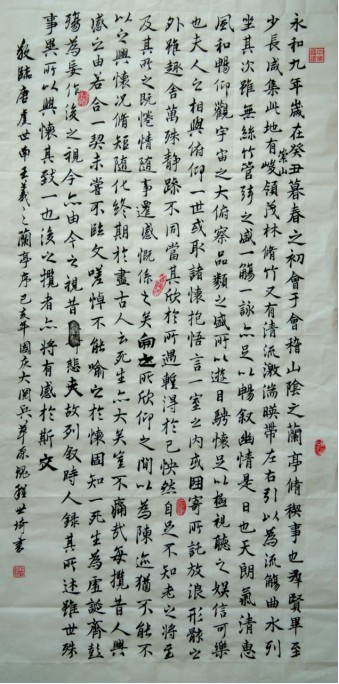 永和九年歲在癸丑暮春之初會于會稽山陰之蘭亭脩稧事也羣賢畢至
崇山
少長咸集此地有峻領茂林脩竹又有清流激湍暎帶左右引以為流觴曲水列
坐其次雖無絲竹管弦之盛一觴一詠亦足以暢叙幽情是日也天朗氣清惠
風和暢仰觀宇宙之大俯察品類之盛所以遊目騁懷足以極視聽之娛信可樂
也夫人之相與俯仰一世或取諸懷抱悟言一室之內或因寄所託放浪形骸之
外雖趣舍萬殊靜躁不同當其欣於所遇暫得於己怏然自足不知老之將至
及其所之既惓情隨事遷感慨係之矣向之所欣仰之間以為陳迹猶不能不
以之興懷況脩短隨化終期於盡古人云死生亦大矣豈不痛哉每攬昔人興
感之由若合一契未嘗不臨文嗟悼不能喻之於懷固知一死生為虛誕齊彭
殤為妄作後之視今亦由今之視昔悲夫故列叙時人錄其所述雖世殊
事異所以興懷其致一也後之攬者亦將有感於斯文
敬臨唐虞世南王羲之蘭亭序己亥年國庆大閱兵草原世琦書